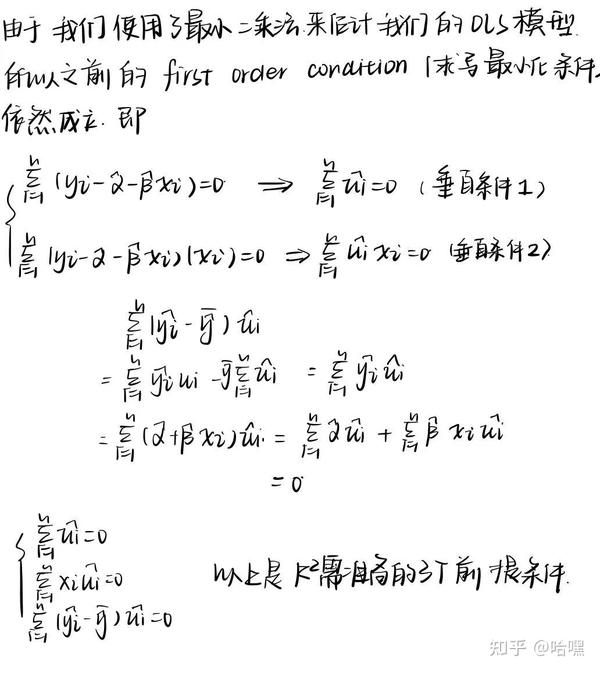 由于我们使用了最小二乘法来估计我们的OLS模型
所以之前的 first order condition (求导最小化条件)
依然成立. 即
{ ∑_{i=1}^{n} (yi-α̂-β̂xi)=0 ⇒ ∑_{i=1}^{n} ûi=0 (垂直条件1)
∑_{i=1}^{n} (yi-α̂-β̂xi)(xi)=0 ⇒ ∑_{i=1}^{n} ûi xi=0 (垂直条件2)
∑_{i=1}^{n} (ŷi-ȳ) ûi
= ∑_{i=1}^{n} ŷi ui - ȳ ∑_{i=1}^{n} ûi = ∑_{i=1}^{n} ŷi ûi
= ∑_{i=1}^{n} (α̂+β̂xi) ûi = ∑_{i=1}^{n} α̂ûi + ∑_{i=1}^{n} β̂ xi ûi
= 0
{ ∑_{i=1}^{n} ûi=0
∑_{i=1}^{n} xiûi=0 以上是 R²需准备的3个前提条件.
∑_{i=1}^{n} (ŷi-ȳ) ûi=0
知乎 @哈嘿